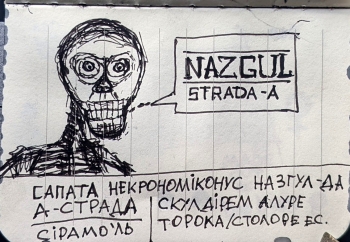 NAZGUL
STRADA-A
САПАТА НЕКРОНОМІКОНУС НАЗГУЛ-ДА
А-СТРАДА
СІРАМО'ЛЬ
СКУЛДІРЕМ АЛУРЕ
ТОРОКА/СТОЛОРЕ ЕС.